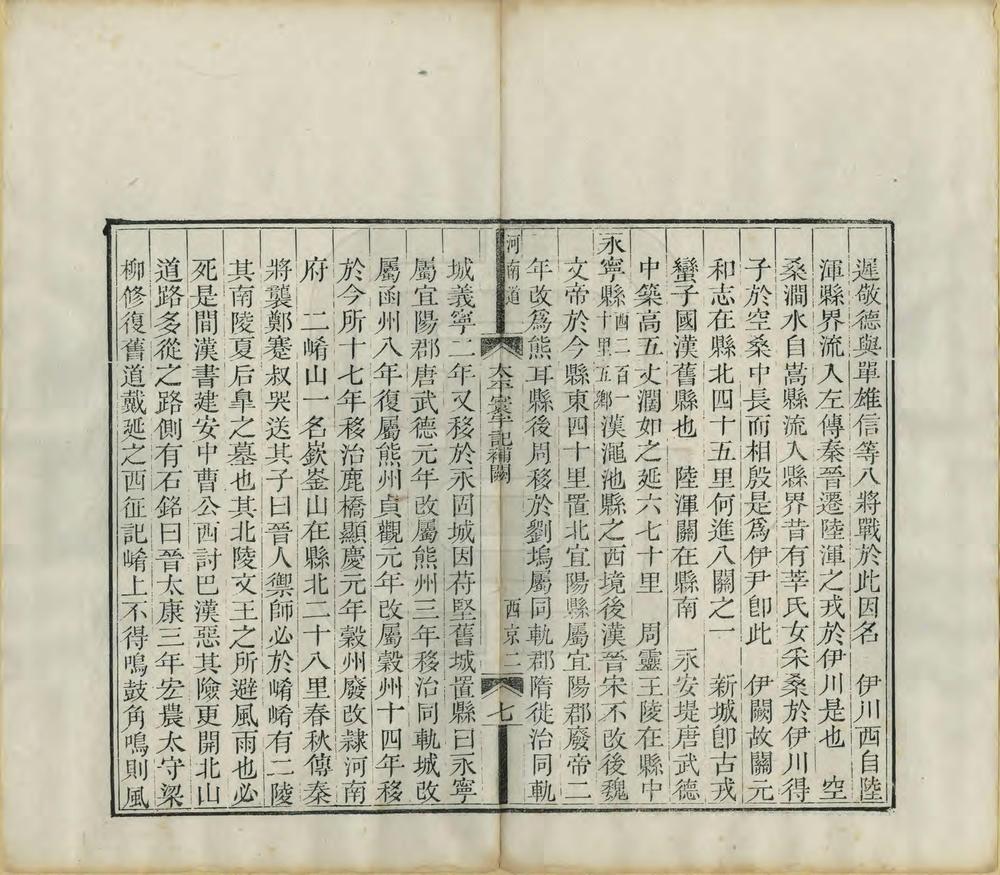 遲敬德與單雄信等八將戰於此因名　伊川西自陸
渾縣界流入左傳秦晉遷陸渾之戎於伊川是也　空
桑澗水自嵩縣流入縣界昔有莘氏女采桑於伊川得
子於空桑中長而相殷是爲伊尹卽此　伊闕故關元
和志在縣北四十五里何進八關之一　新城卽古戎
蠻子國漢舊縣也　陸渾關在縣南　永安堤唐武德
中築高五丈濶如之延六七十里　周靈王陵在縣中
永寧縣西二百一十里五鄉漢澠池縣之西境後漢晉宋不改後魏
文帝於今縣東四十里置北宜陽縣屬宜陽郡廢帝二
年改爲熊耳縣後周移於劉塢屬同軌郡隋徙治同軌
河南道
太平寰宇記補闕
西京二
七
城義寧二年又移於永固城因苻堅舊城置縣曰永寧
屬宜陽郡唐武德元年改屬熊州三年移治同軌城改
屬函州八年復屬熊州貞觀元年改屬穀州十四年移
於今所十七年移治鹿橋顯慶元年穀州廢改隸河南
府　二崤山一名嶔崟山在縣北二十八里春秋傳秦
將襲鄭蹇叔哭送其子曰晉人禦師必於崤崤有二陵
其南陵夏后皐之墓也其北陵文王之所避風雨也必
死是間漢書建安中曹公西討巴漢惡其險更開北山
道路多從之路側有石銘曰晉太康三年宏農太守梁
柳修復舊道戴延之西征記崤上不得鳴鼓角鳴則風